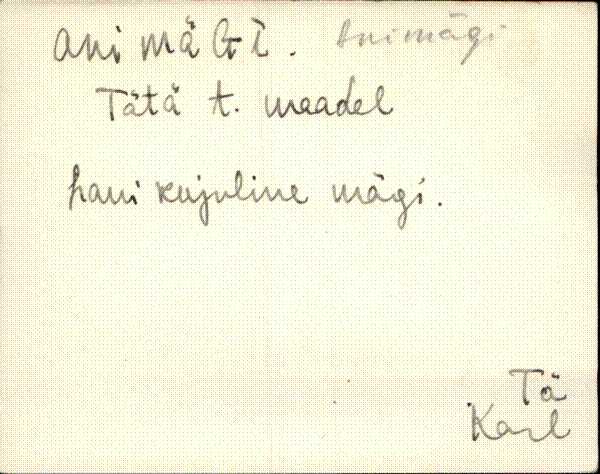 ani mäGi. Animägi
Tätä t. maadel
hani kujuline mägi.
Tä
Karl